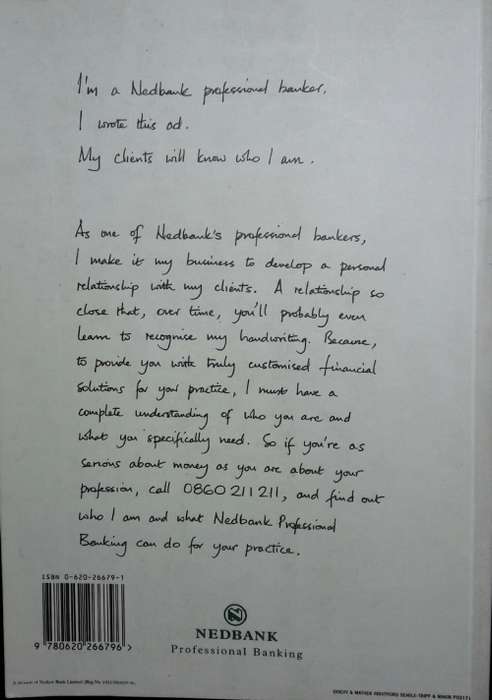 I'm a Nedbank professional banker.
I wrote this ad.
My clients will know who I am.
As one of Nedbank's professional bankers,
I make it my business to develop a personal
relationship with my clients. A relationship so
close that, over time, you'll probably even
learn to recognise my handwriting. Because,
to provide you with truly customised financial
solutions for your practice, I must have a
complete understanding of who you are and
what you specifically need. So if you're as
serious about money as you are about your
profession, call 0860 211 211, and find out
who I am and what Nedbank Professional
Banking can do for your practice.
ISBN 0-620-26679-1
9 780620 266796 >
NEDBANK
Professional Banking